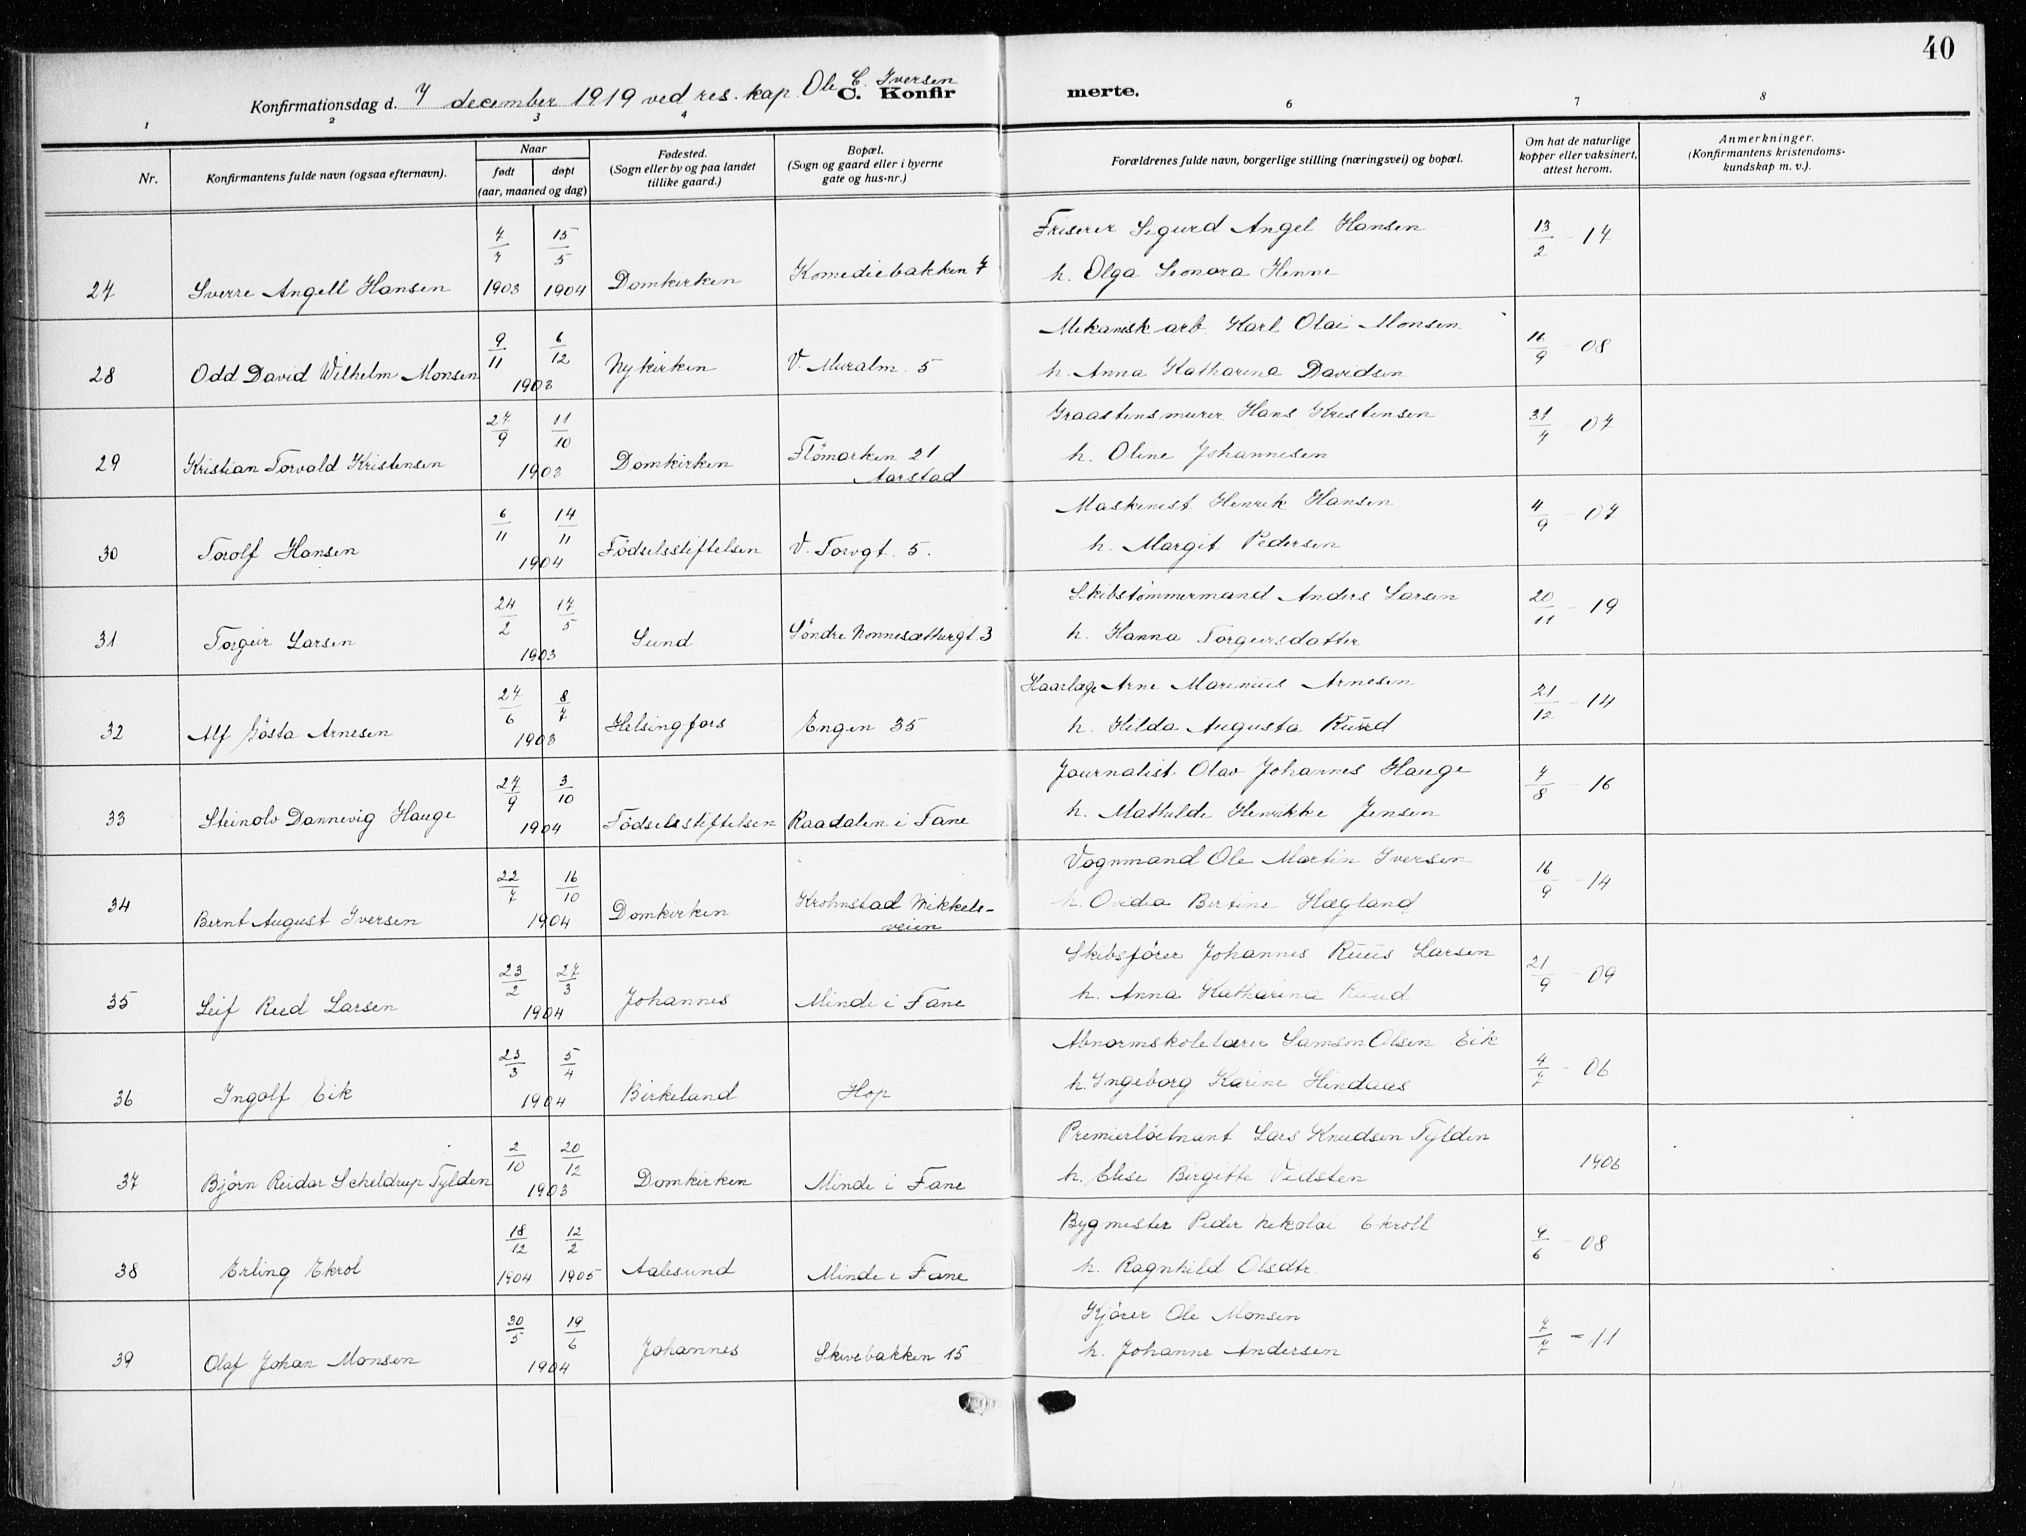 40
Konfirmationsdag d. 7 december 1919 ved res. kap. Ole C. Iversen
C. Konfirmerte.
1 2 3 4 6 7 8
Nr.
Konfirmantens fulde navn (ogsaa efternavn).
Naar
født døpt
(aar, maaned og dag)
Fødested.
(Sogn eller by og paa landet
tillike gaard.)
Bopæl.
(Sogn og gaard eller i byerne
gate og hus-nr.)
Forældrenes fulde navn, borgerlige stilling (næringsvei) og bopæl.
Om hat de naturlige
kopper eller vaksinert,
attest herom.
Anmerkninger.
(Konfirmantens kristendoms-
kundskap m. v.).
27 Sverre Angell Hansen 7/7 1903 15/5 1904 Domkirken Komediebakken 7 Friserer Sigurd Angel Hansen 13/2 - 17
h. Olga Leonora Henne
28 Odd David Wilhelm Monsen 9/11 6/12 1903 Nykirken V. Muralm. 5 Mekanisk arb. Karl Olai Monsen 16/9 - 08
h. Anna Katharina Davidsen
29 Kristian Torvald Kristensen 27/9 11/10 1903 Domkirken Flömarken 21 Graastensmurer Hans Kristensen 31/7 - 07
Aarstad h. Oline Johannesen
30 Torolf Hansen 6/11 14/11 1904 Födselsstiftelsen V. Torvgt. 5. Maskinist Henrik Hansen 4/9 - 07
h. Margit Pedersen
31 Torgeir Larsen 24/2 17/5 1903 Sund Söndre Nonnesæthergt 3 Skibstömmermand Anders Larsen 20/11 - 19
h. Hanna Torgeirsdatter
32 Alf Gösta Arnesen 27/6 8/7 1903 Helsingfors Engen 35 Haarlæge Arne Marinius Arnesen 21/12 - 14
h. Hilda Augusta Ruud
33 Steinolv Dannevig Hauge 27/9 3/10 1904 Födselsstiftelsen Raadalen i Fane Journalist Olav Johannes Hauge 7/8 - 16
h. Mathilde Henrikke Jensen
34 Bernt August Iversen 22/7 16/10 1904 Domkirken Krohnstad Mikkels- Vognmand Ole Martin Iversen 16/9 - 14
veien h. Ovidia Bertine Hægland
35 Leif Rud Larsen 23/2 27/3 1904 Johannes Minde i Fane Skibsfører Johannes Ruus Larsen 21/9 - 09
h. Anna Katharina Ruud
36 Ingolf Eik 23/3 5/4 1904 Birkeland Hop Abnormskolelærer Samson Olsen Eik 4/7 - 06
h. Ingeborg Karine Hindaas
37 Bjørn Reidar Scheldrup Tylden 2/10 20/12 1903 Domkirken Minde i Fane Premierløitnant Lars Knudsen Tylden 1906
h. Elise Birgitte Vidsten
38 Erling Ekrol 18/12 1904 12/2 1905 Aalesund Minde i Fane Bygmester Peder Nikolai Ekroll 4/6 - 08
h. Ragnhild Olsdtr.
39 Olaf Johan Monsen 30/5 19/6 1904 Johannes Skivebakken 15 Kjører Ole Monsen 7/7 - 11
h. Johanne Andersen